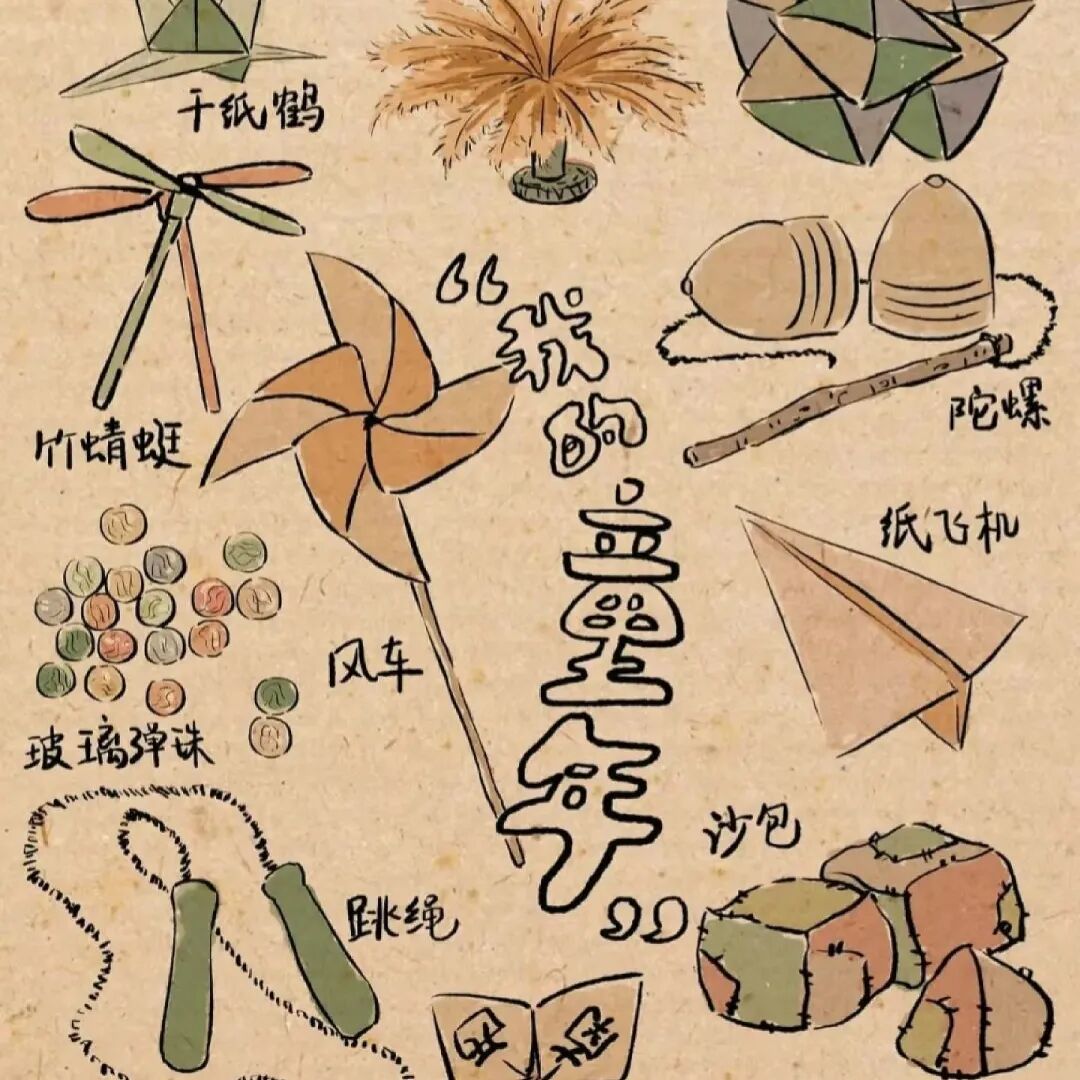 千纸鹤
竹蜻蜓
“我的童年”
陀螺
纸飞机
风车
玻璃弹珠
沙包
跳绳